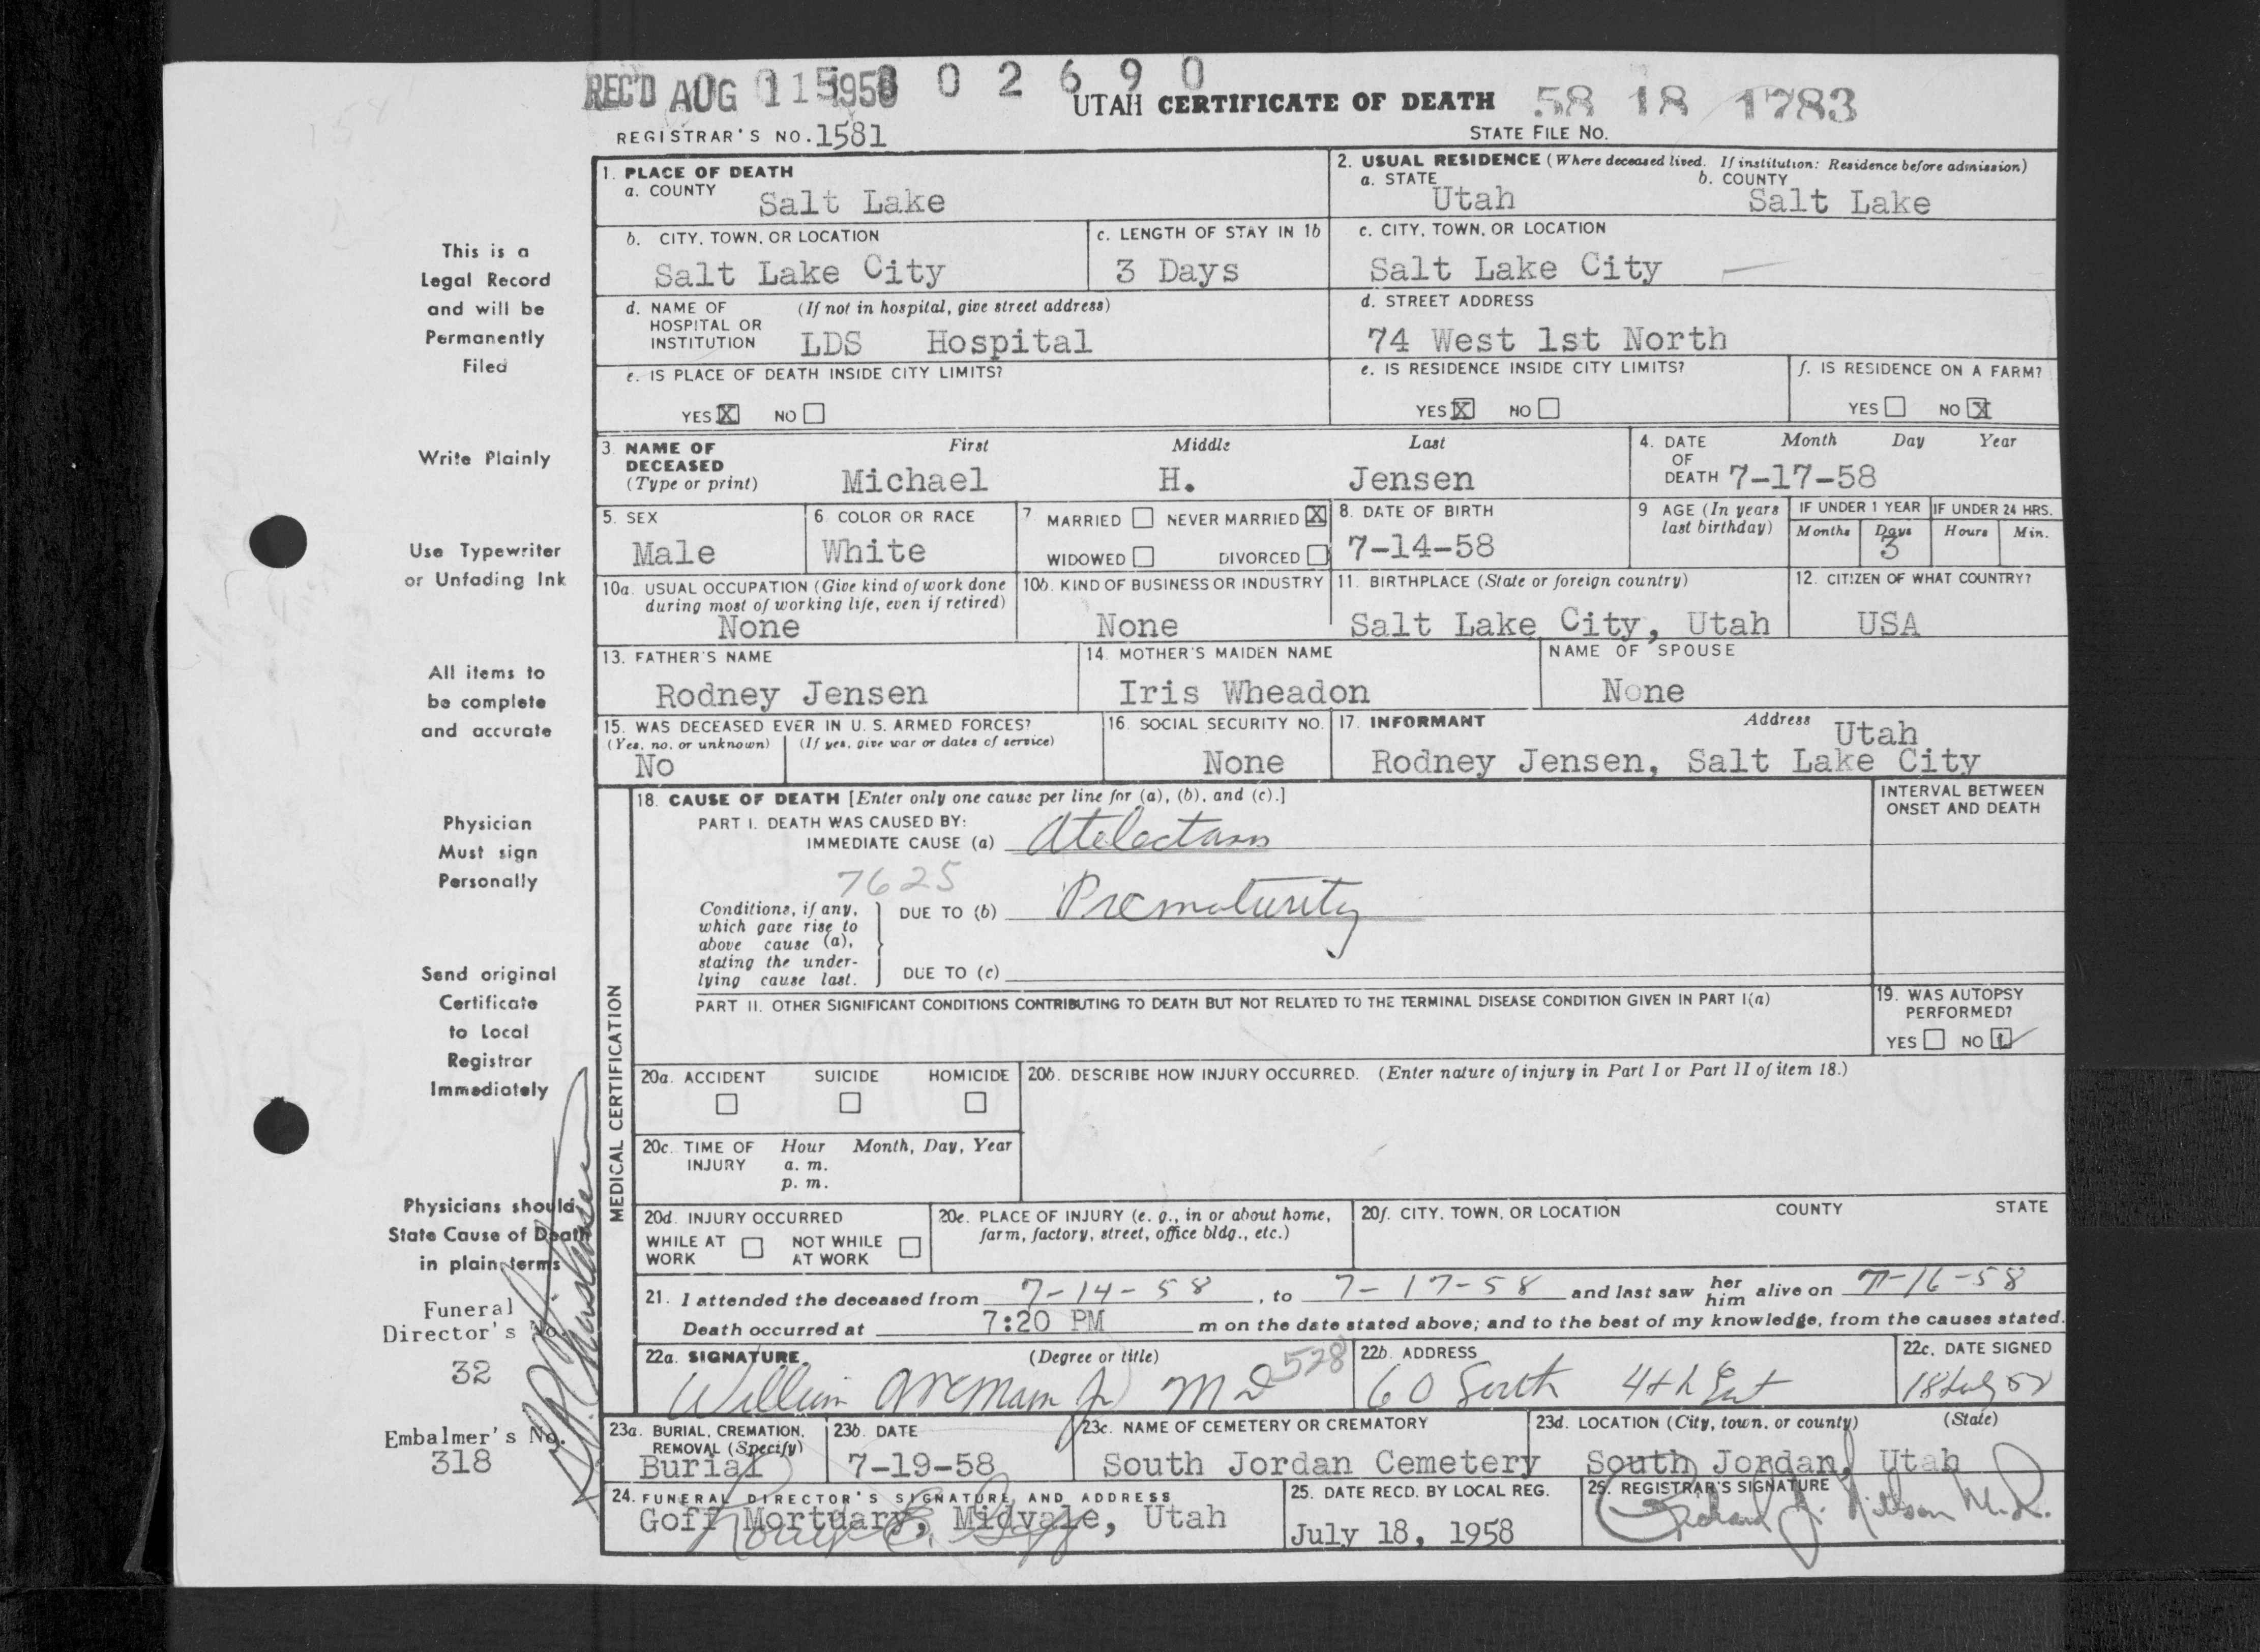 REC'D AUG 11 1958 5 8 0 2 6 9 0
UTAH CERTIFICATE OF DEATH 58 18 1783
REGISTRAR'S NO. 1581 STATE FILE NO.
1. PLACE OF DEATH
a. COUNTY Salt Lake
2. USUAL RESIDENCE (Where deceased lived. If institution: Residence before admission)
a. STATE Utah b. COUNTY Salt Lake
b. CITY, TOWN, OR LOCATION Salt Lake City
c. LENGTH OF STAY IN 1b 3 Days
c. CITY, TOWN, OR LOCATION Salt Lake City
d. NAME OF HOSPITAL OR INSTITUTION (If not in hospital, give street address) LDS Hospital
d. STREET ADDRESS 74 West 1st North
e. IS PLACE OF DEATH INSIDE CITY LIMITS?
YES X NO
e. IS RESIDENCE INSIDE CITY LIMITS?
YES X NO
f. IS RESIDENCE ON A FARM?
YES NO X
3. NAME OF DECEASED (Type or print) First Middle Last
Michael H. Jensen
4. DATE OF DEATH Month Day Year
7-17-58
5. SEX Male
6. COLOR OR RACE White
7. MARRIED NEVER MARRIED X
WIDOWED DIVORCED
8. DATE OF BIRTH 7-14-58
9. AGE (In years last birthday)
IF UNDER 1 YEAR IF UNDER 24 HRS.
Months Days Hours Min.
3
10a. USUAL OCCUPATION (Give kind of work done during most of working life, even if retired)
None
10b. KIND OF BUSINESS OR INDUSTRY
None
11. BIRTHPLACE (State or foreign country)
Salt Lake City, Utah
12. CITIZEN OF WHAT COUNTRY?
USA
13. FATHER'S NAME
Rodney Jensen
14. MOTHER'S MAIDEN NAME
Iris Wheadon
NAME OF SPOUSE
None
15. WAS DECEASED EVER IN U. S. ARMED FORCES?
(Yes, no, or unknown) (If yes, give war or dates of service)
No
16. SOCIAL SECURITY NO.
None
17. INFORMANT Address
Rodney Jensen, Salt Lake City Utah
MEDICAL CERTIFICATION
18. CAUSE OF DEATH [Enter only one cause per line for (a), (b), and (c).]
INTERVAL BETWEEN ONSET AND DEATH
PART I. DEATH WAS CAUSED BY:
IMMEDIATE CAUSE (a) Atelectasis
7625
Conditions, if any, which gave rise to above cause (a), stating the underlying cause last.
DUE TO (b) Prematurity
DUE TO (c)
PART II. OTHER SIGNIFICANT CONDITIONS CONTRIBUTING TO DEATH BUT NOT RELATED TO THE TERMINAL DISEASE CONDITION GIVEN IN PART I(a)
19. WAS AUTOPSY PERFORMED?
YES NO
20a. ACCIDENT SUICIDE HOMICIDE
20b. DESCRIBE HOW INJURY OCCURRED. (Enter nature of injury in Part I or Part II of item 18.)
20c. TIME OF INJURY Hour Month, Day, Year
a. m.
p. m.
20d. INJURY OCCURRED
WHILE AT WORK NOT WHILE AT WORK
20e. PLACE OF INJURY (e. g., in or about home, farm, factory, street, office bldg., etc.)
20f. CITY, TOWN, OR LOCATION COUNTY STATE
21. I attended the deceased from 7-14-58, to 7-17-58 and last saw her him alive on 7-16-58
Death occurred at 7:20 PM m on the date stated above; and to the best of my knowledge, from the causes stated.
22a. SIGNATURE (Degree or title) 528
William M D
22b. ADDRESS
60 South 4th East
22c. DATE SIGNED
18 July 58
23a. BURIAL, CREMATION, REMOVAL (Specify)
Burial
23b. DATE
7-19-58
23c. NAME OF CEMETERY OR CREMATORY
South Jordan Cemetery
23d. LOCATION (City, town, or county) (State)
South Jordan, Utah
24. FUNERAL DIRECTOR'S SIGNATURE AND ADDRESS
Goff Mortuary, Midvale, Utah
25. DATE RECD. BY LOCAL REG.
July 18, 1958
26. REGISTRAR'S SIGNATURE
This is a
Legal Record
and will be
Permanently
Filed
Write Plainly
Use Typewriter
or Unfading Ink
All items to
be complete
and accurate
Physician
Must sign
Personally
Send original
Certificate
to Local
Registrar
Immediately
Physicians should
State Cause of Death
in plain terms
Funeral
Director's No.
32
Embalmer's No.
318